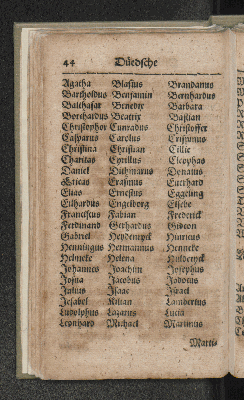 44 Düedsche
Agatha Blasius Brandanus
Bartholdus Benjamin Bernhardus
Balthasar Benedix Barbara
Borchardus Beatrix Bastian
Christophor Cunradus Christoffer
Casparus Carolus
Christina Christian Cilie
Charitas Cyrillus Cleophas
Daniel Dithmarus Donatus
Ericus Erasmus Everhard
Elias Ernestus Eggeling
Eilhardus Engelborg Elsebe
Franciscus Fabian Frederick
Ferdinand Gerhardus Gideon
Gabriel Heydenryck Huricus
Henningus Hermannus Henneke
Helmeke Helena
Johannes Joachim Josephus
Josua Jacobus Jodocus
Julius Isaac Israel
Jesabel Kilian Lambertus
Ludolphus Lazarus Lucia
Leonhard Michael Martinus
Martis